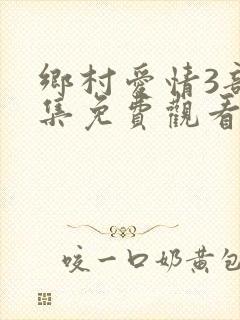 鄉村愛情3
集免費觀看
咬一口奶黄包